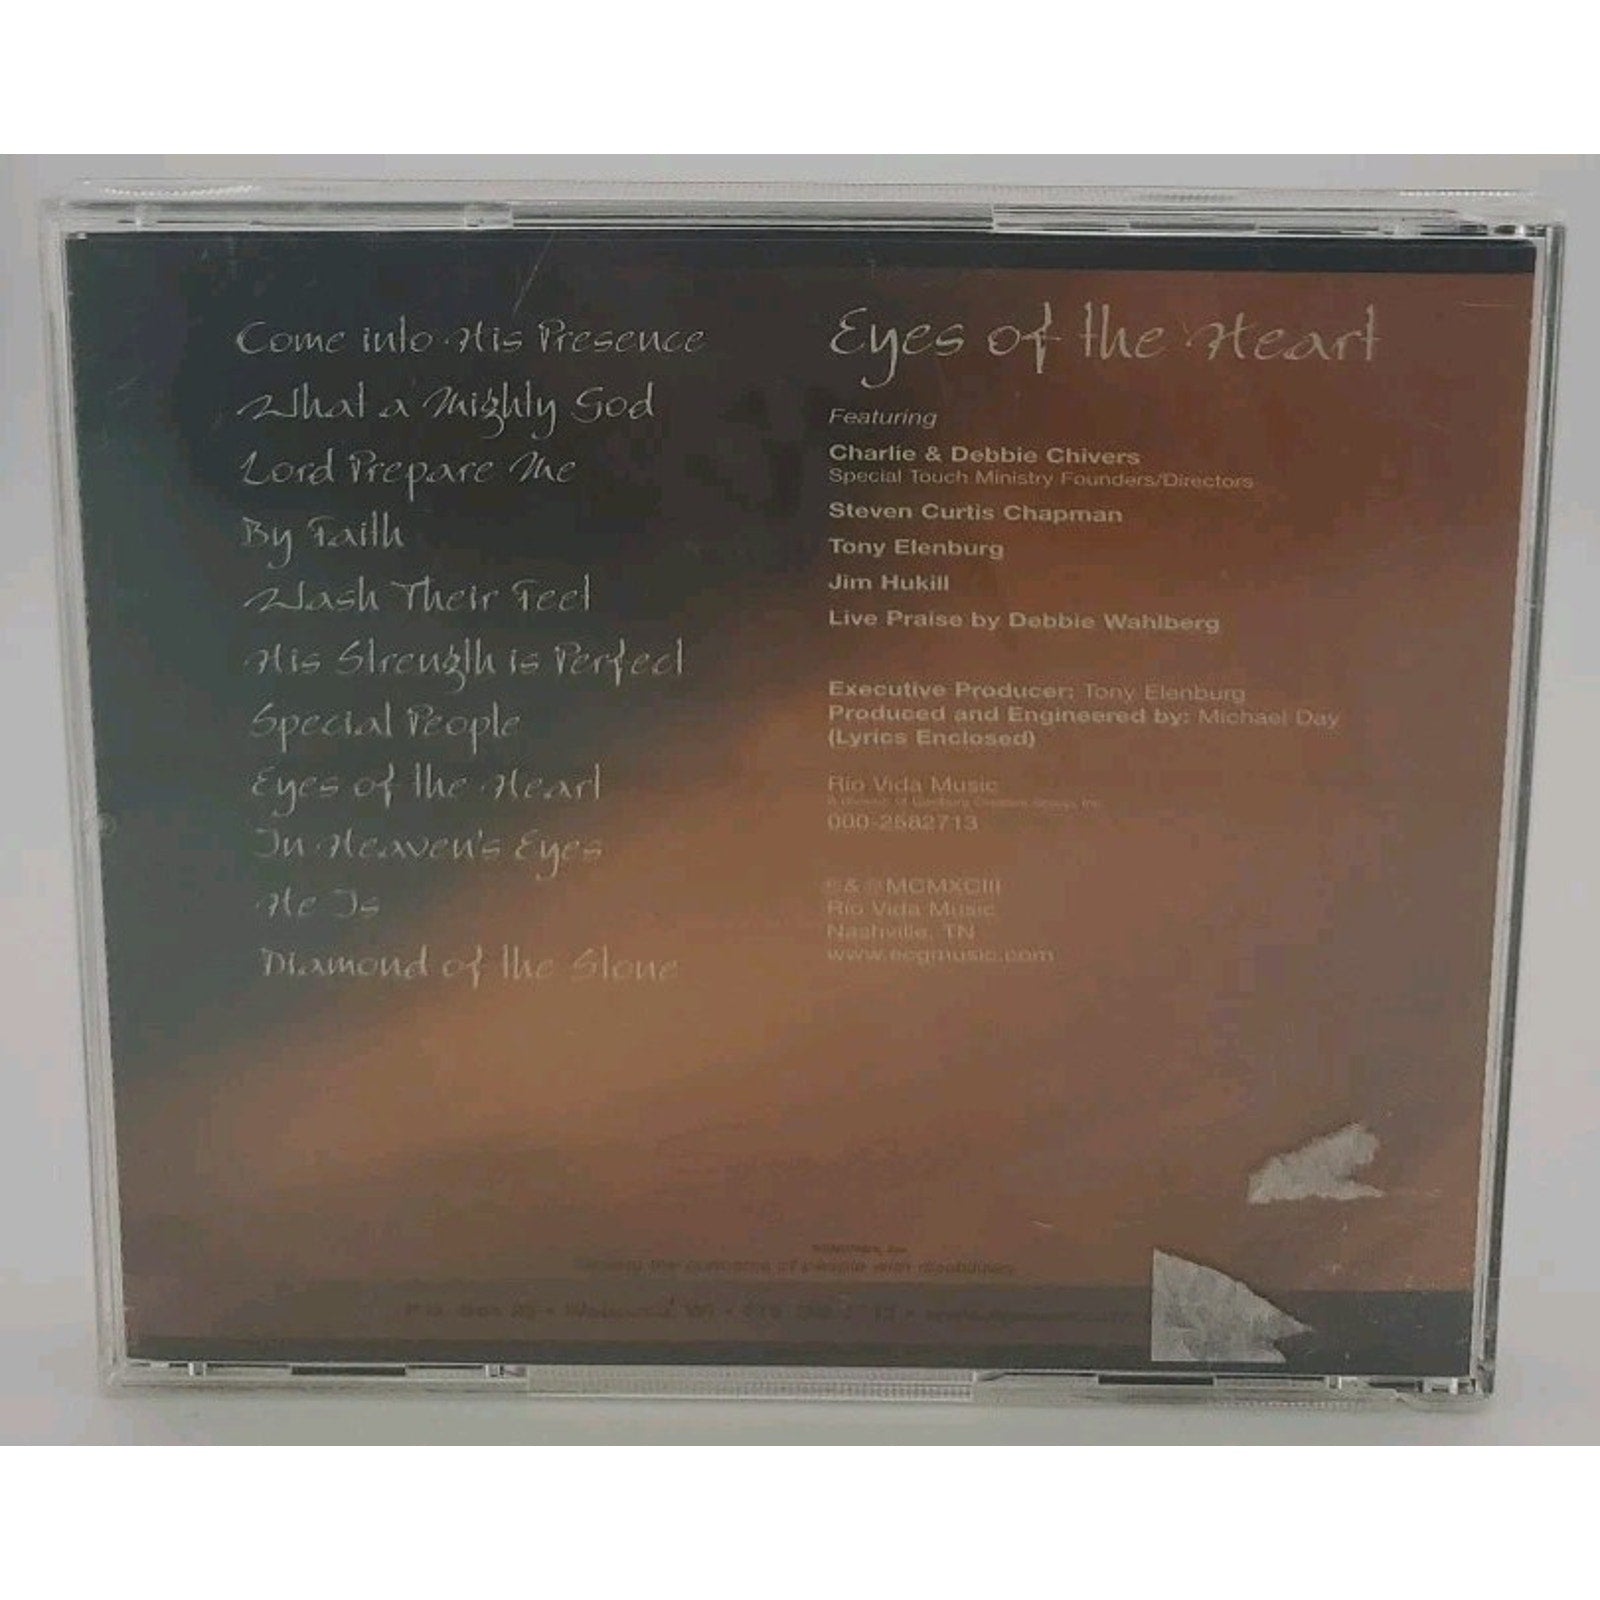 Come into His Presence
What a Mighty God
Lord Prepare Me
By Faith
Wash Their Feet
His Strength is Perfect
Special People
Eyes of the Heart
In Heaven's Eyes
He Is
Diamond of the Stone
Eyes of the Heart
Featuring
Charlie & Debbie Chivers
Special Touch Ministry Founders/Directors
Steven Curtis Chapman
Tony Elenburg
Jim Hukill
Live Praise by Debbie Wahlberg
Executive Producer: Tony Elenburg
Produced and Engineered by: Michael Day
(Lyrics Enclosed)
Rio Vida Music
A division of Elenburg Creative Group, Inc.
000-2582713
© & ℗ MCMXCIII
Rio Vida Music
Nashville, TN
www.ecgmusic.com
of people with